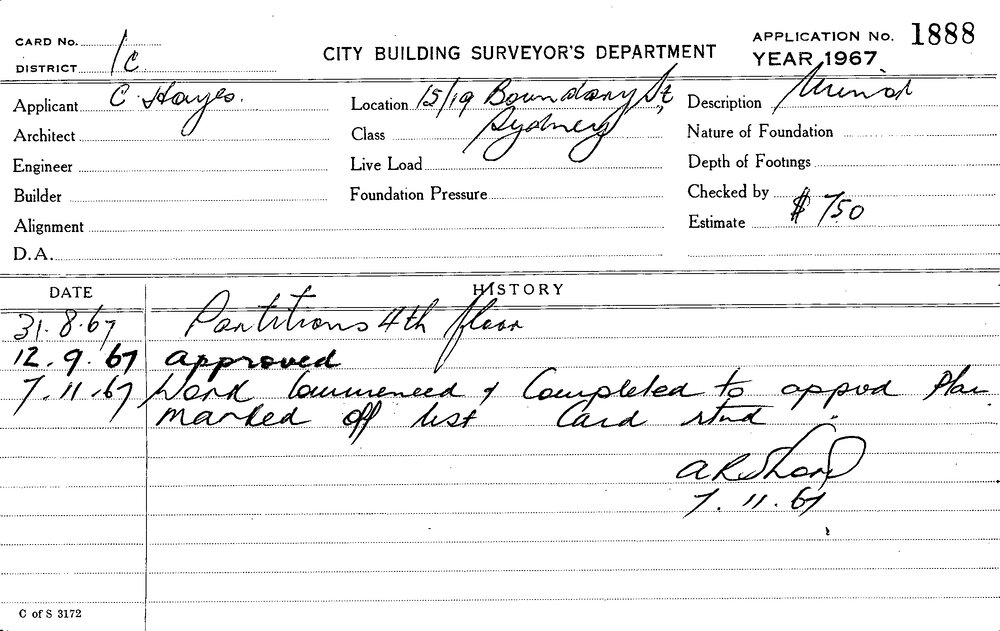 CARD No.
DISTRICT 1C
CITY BUILDING SURVEYOR'S DEPARTMENT
APPLICATION No. 1888
YEAR 1967
Applicant C. Hayes.
Location 15/19 Boundary St,
Sydney
Description Minor
Architect
Class
Nature of Foundation
Engineer
Live Load
Depth of Footings
Builder
Foundation Pressure
Checked by
Alignment
Estimate $ 750
D.A.
DATE HISTORY
31.8.67 Partitions 4th floor
12.9.67 approved
7.11.67 Work commenced & Completed to appvd Plan
marked off list Card rtnd
7.11.67
C of S 3172